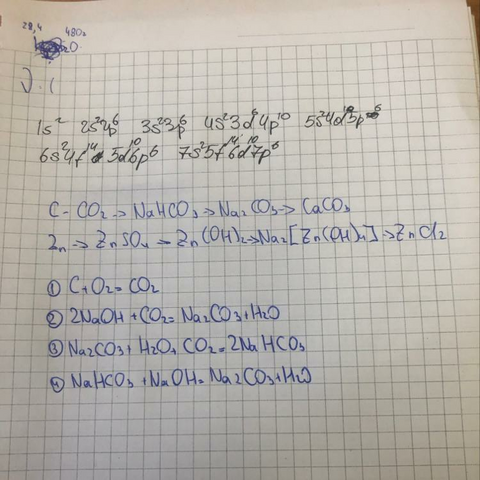 28,4 480
1s² 2s²2p⁶ 3s²3p⁶ 4s²3d⁶4p¹⁰ 5s²4d¹⁰5p⁶
6s²4f¹⁴5d¹⁰6p⁶ 7s²5f¹⁴6d¹⁰7p⁶
C-CO₂→NaHCO₃→Na₂CO₃→CaCO₃
Zn→ZnSO₄→Zn(OH)₂→Na₂[Zn(OH)₄]→ZnCl₂
① C+O₂=CO₂
② 2NaOH+CO₂=Na₂CO₃+H₂O
③ Na₂CO₃+H₂O+CO₂=2NaHCO₃
④ NaHCO₃+NaOH=Na₂CO₃+H₂O